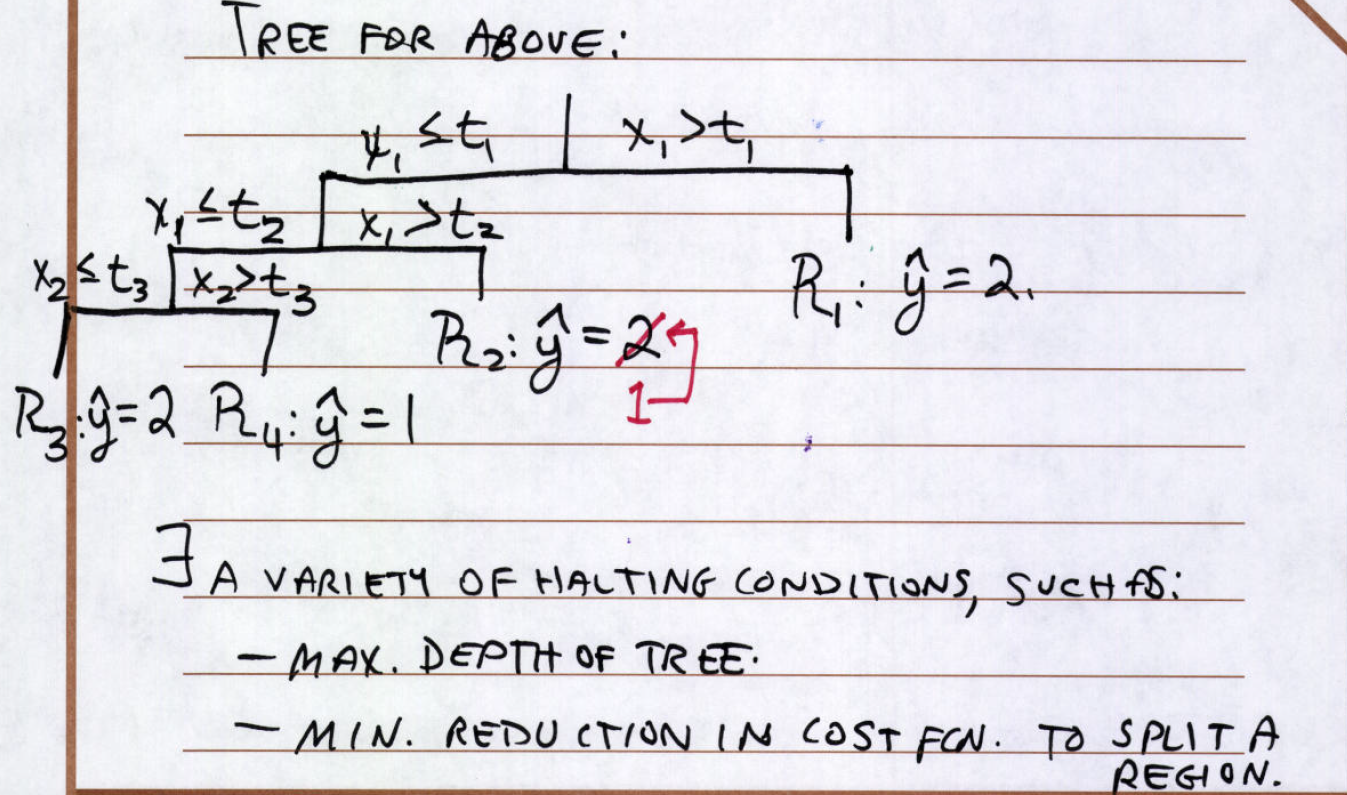 TREE FOR ABOVE:
x₁ ≤ t₁ x₁ > t₁
x₁ ≤ t₂ x₁ > t₂
x₂ ≤ t₃ x₂ > t₃
R₁: ŷ = 2.
R₂: ŷ = 2
1
R₃: ŷ = 2 R₄: ŷ = 1
∃ A VARIETY OF HALTING CONDITIONS, SUCH AS:
– MAX. DEPTH OF TREE.
– MIN. REDUCTION IN COST FCN. TO SPLIT A
REGION.